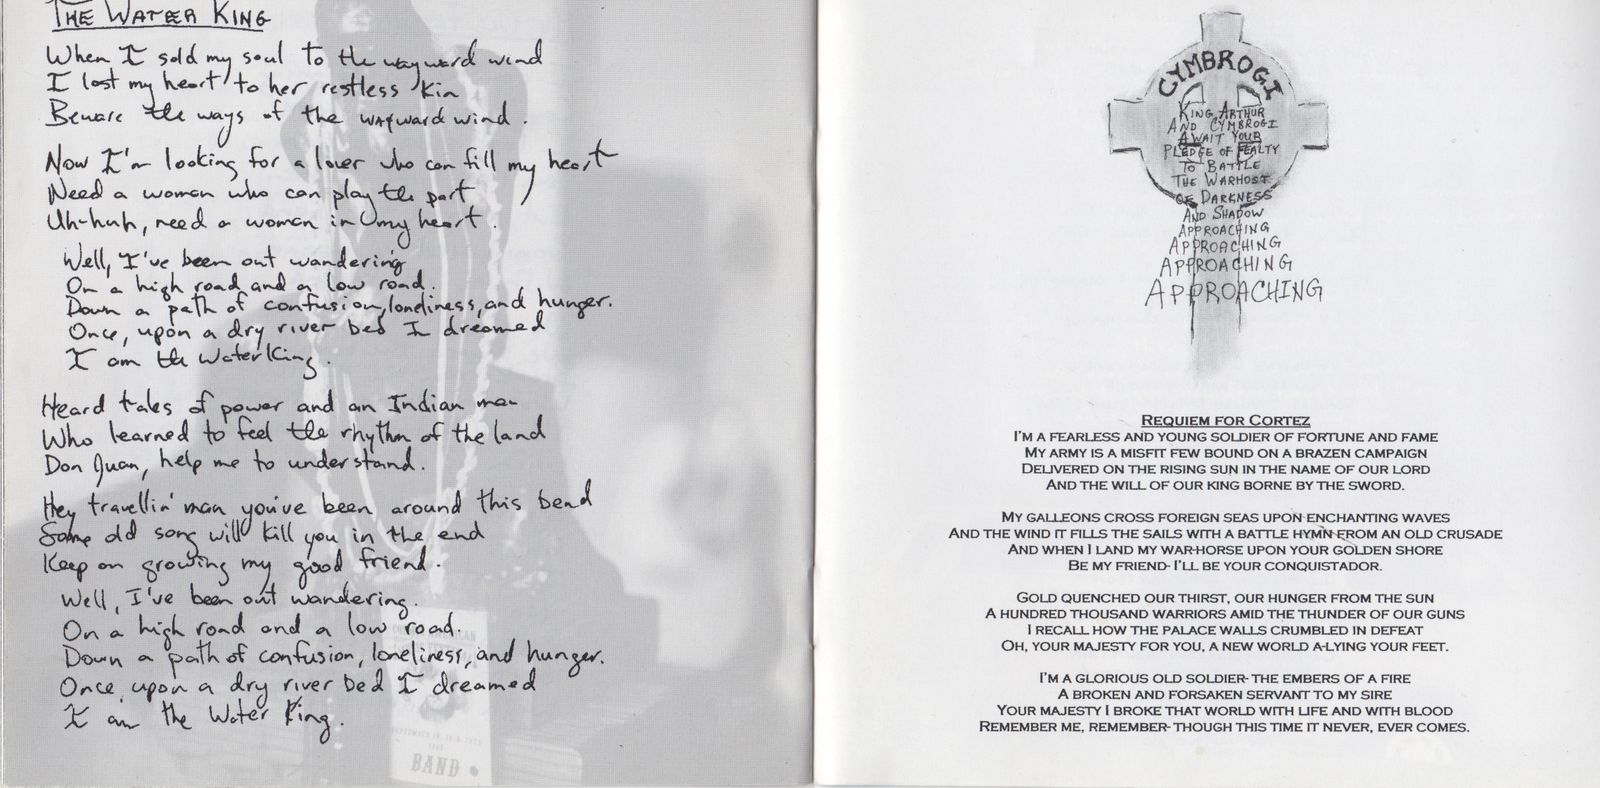 THE WATER KING
When I sold my soul to the wayward wind
I lost my heart to her restless kin
Beware the ways of the wayward wind.
Now I'm looking for a lover who can fill my heart
Need a woman who can play the part
Uh-huh, need a woman in my heart.
Well, I've been out wandering
On a high road and a low road.
Down a path of confusion, loneliness, and hunger.
Once, upon a dry river bed I dreamed
I am the Water King.
Heard tales of power and an Indian man
Who learned to feel the rhythm of the land
Don Juan, help me to understand.
Hey travellin' man you've been around this bend
Same old song will kill you in the end
Keep on growing my good friend.
Well, I've been out wandering.
On a high road and a low road.
Down a path of confusion, loneliness, and hunger.
Once, upon a dry river bed I dreamed
I am the Water King.
BAND
CYMBROGI
KING ARTHUR
AND CYMBROGI
AWAIT YOUR
PLEDGE OF FEALTY
TO BATTLE
THE WARHOST
OF DARKNESS
AND SHADOW
APPROACHING
APPROACHING
APPROACHING
APPROACHING
REQUIEM FOR CORTEZ
I'M A FEARLESS AND YOUNG SOLDIER OF FORTUNE AND FAME
MY ARMY IS A MISFIT FEW BOUND ON A BRAZEN CAMPAIGN
DELIVERED ON THE RISING SUN IN THE NAME OF OUR LORD
AND THE WILL OF OUR KING BORNE BY THE SWORD.
MY GALLEONS CROSS FOREIGN SEAS UPON ENCHANTING WAVES
AND THE WIND IT FILLS THE SAILS WITH A BATTLE HYMN FROM AN OLD CRUSADE
AND WHEN I LAND MY WAR-HORSE UPON YOUR GOLDEN SHORE
BE MY FRIEND- I'LL BE YOUR CONQUISTADOR.
GOLD QUENCHED OUR THIRST, OUR HUNGER FROM THE SUN
A HUNDRED THOUSAND WARRIORS AMID THE THUNDER OF OUR GUNS
I RECALL HOW THE PALACE WALLS CRUMBLED IN DEFEAT
OH, YOUR MAJESTY FOR YOU, A NEW WORLD A-LYING YOUR FEET.
I'M A GLORIOUS OLD SOLDIER- THE EMBERS OF A FIRE
A BROKEN AND FORSAKEN SERVANT TO MY SIRE
YOUR MAJESTY I BROKE THAT WORLD WITH LIFE AND WITH BLOOD
REMEMBER ME, REMEMBER- THOUGH THIS TIME IT NEVER, EVER COMES.